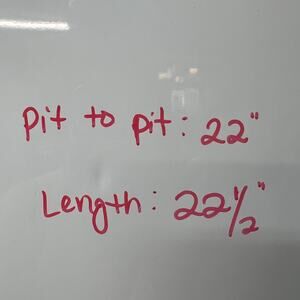 pit to pit: 22"
Length: 22 1/2"